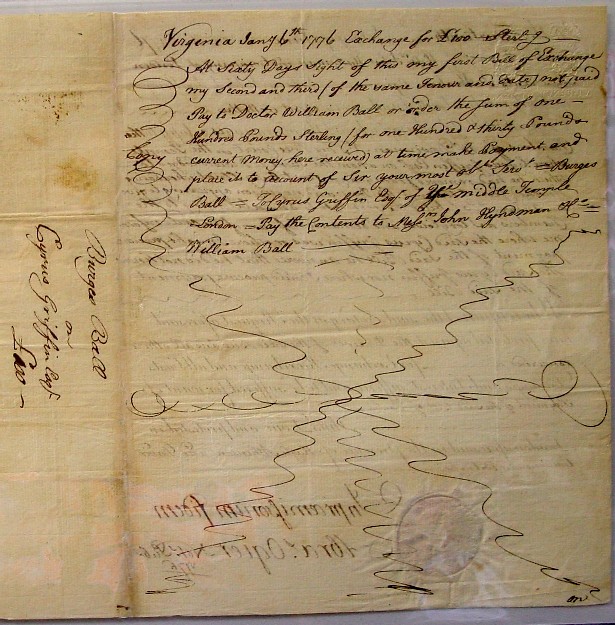 Virginia Jany 6th 1776 Exchange for £100 Sterlg
At Sixty Days Sight of this my first Bill of Exchange
my Second and third (of the same Tenour and date) not paid
Pay to Doctor William Ball or order the sum of one
Hundred Pounds Sterling (for one Hundred & thirty Pounds
current Money here received) at time make Payment and
place it to account of Sir your most obt. Servt. = Burges
Ball = To Cyrus Griffin Esqr. of middle Temple
London = Pay the Contents to Messrs John Hyndman &Co =
William Ball
Copy
Burges Ball
on
Cyrus Griffin Esqr.
£100
on